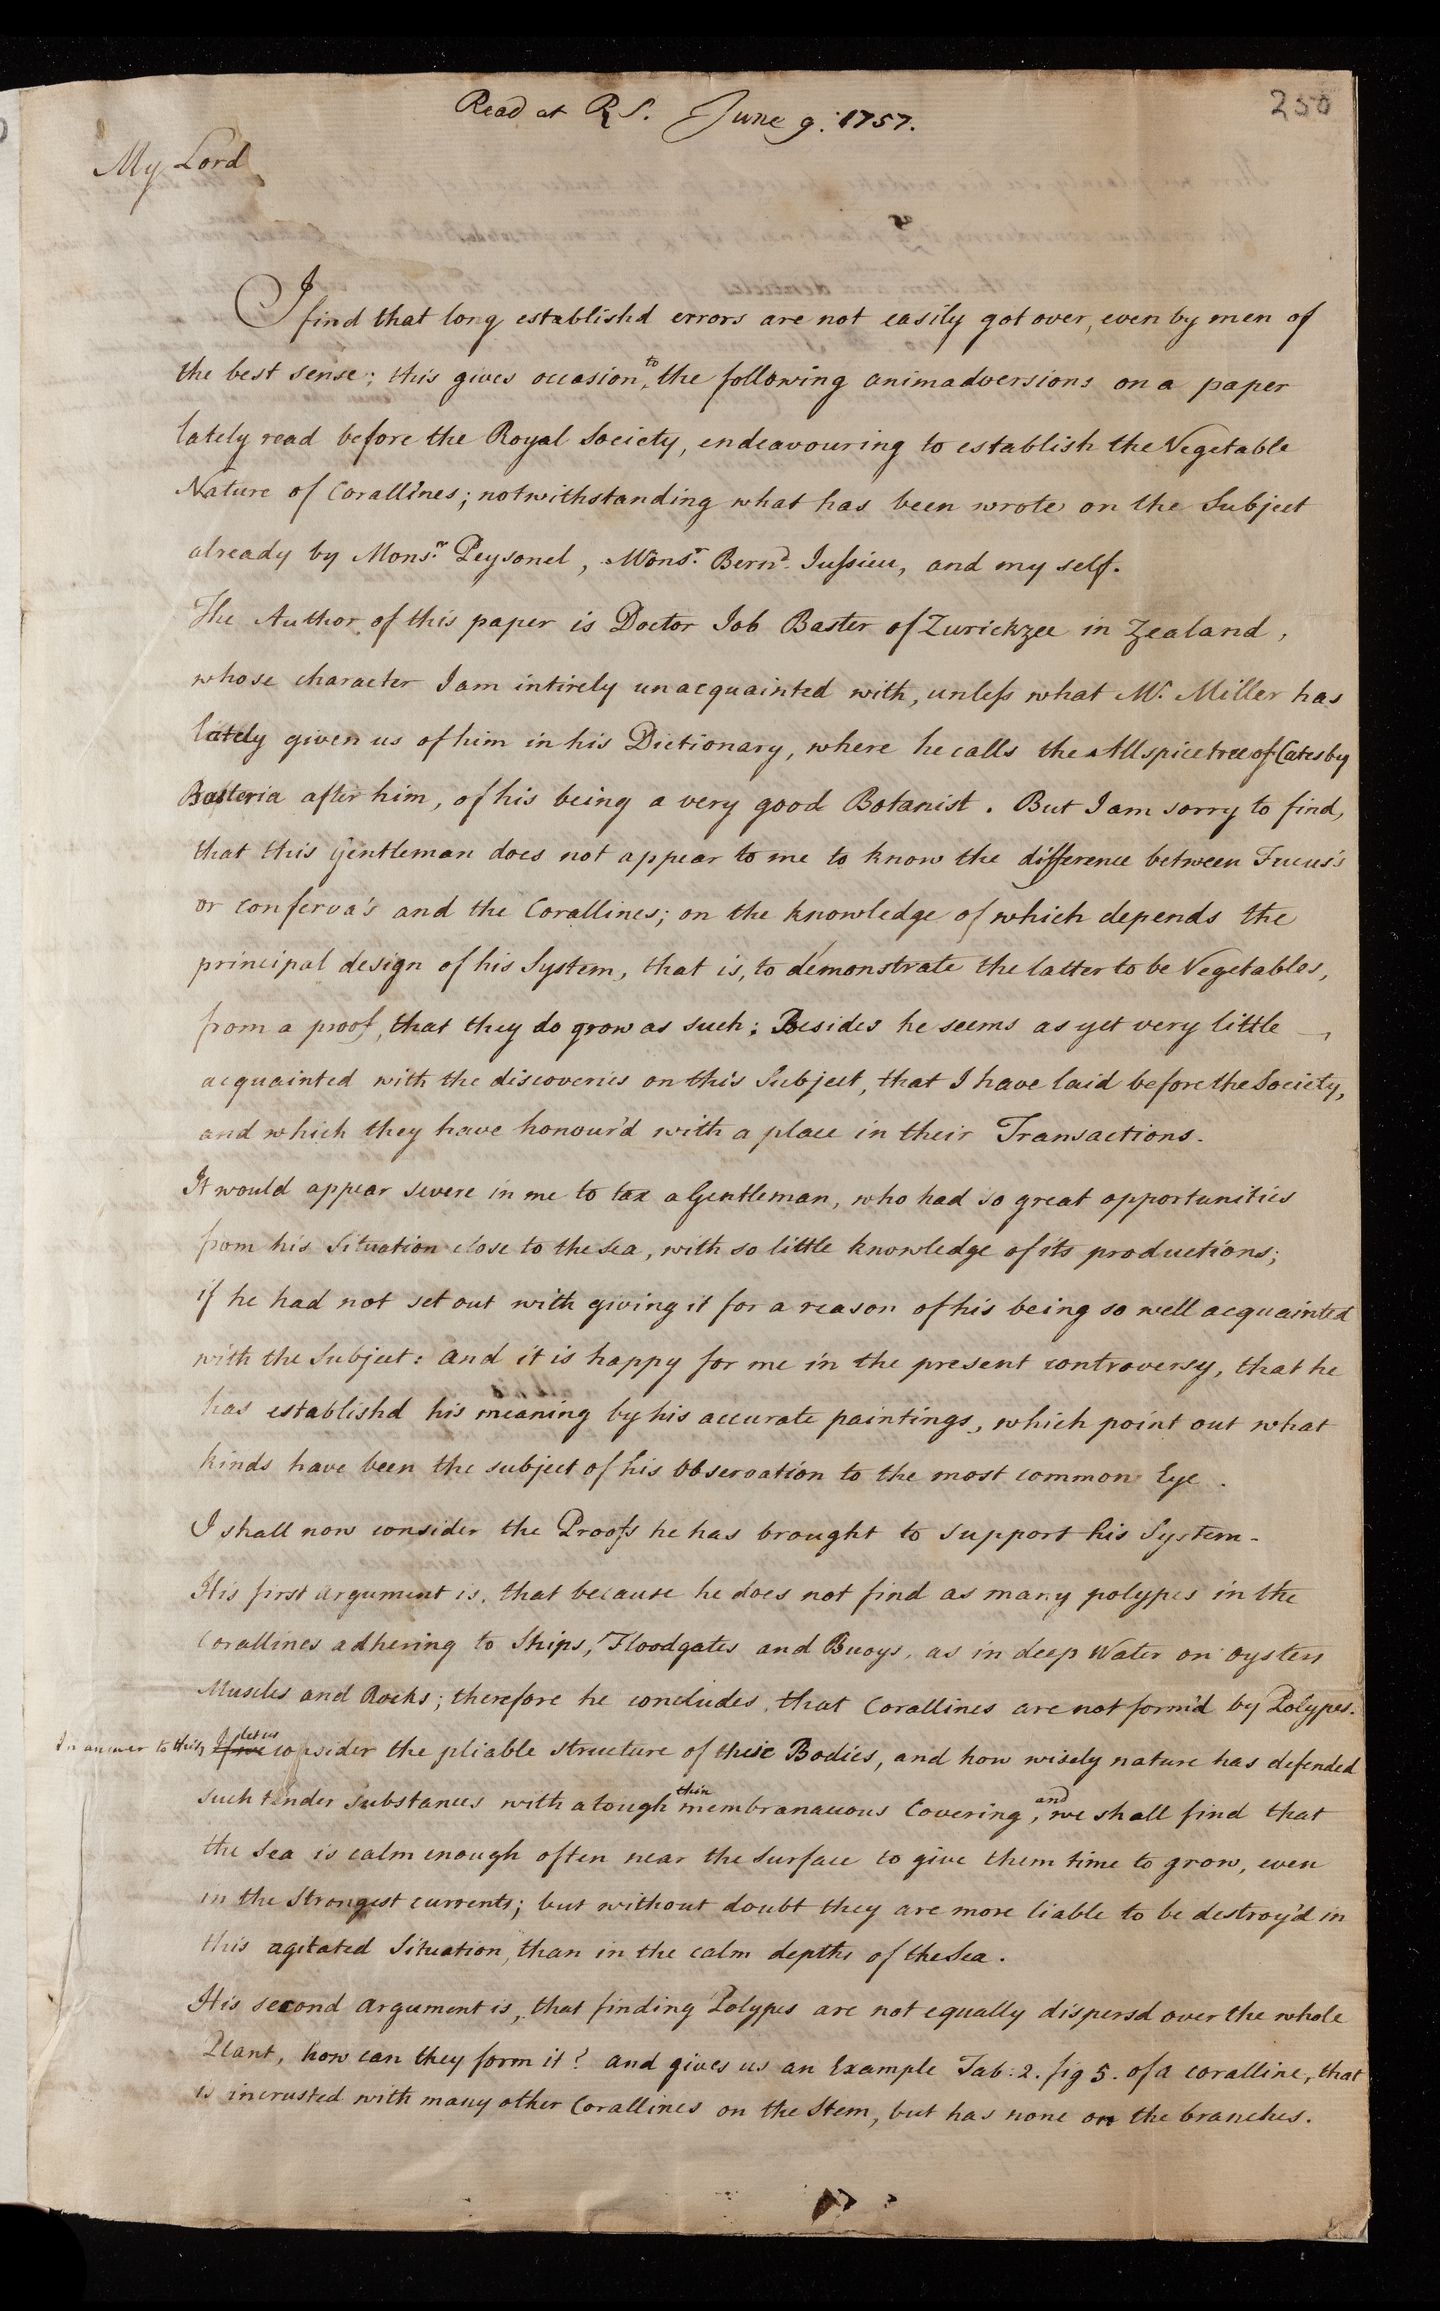 Read at R S. June 9. 1757.
250
My Lord
I find that long establishd errors are not easily got over, even by men of
the best sense; this gives occasion to the following animadversions on a paper
lately read before the Royal Society, endeavouring to establish the Vegetable
Nature of Corallines; notwithstanding what has been wrote on the Subject
already by Monsr. Peysonel, Monsr. Bernd. Jussieu, and my self.
The Author of this paper is Doctor Job Baster of Zurickzee in Zealand,
whose character I am intirely unacquainted with, unless what Mr. Miller has
lately given us of him in his Dictionary, where he calls the Allspice tree of Catesby
Basteria after him, of his being a very good Botanist. But I am sorry to find,
that this Gentleman does not appear to me to know the difference between Fucus's
or conferva's and the Corallines; on the knowledge of which depends the
principal design of his System, that is, to demonstrate the latter to be Vegetables,
from a proof, that they do grow as such: Besides he seems as yet very little
acquainted with the discoveries on this Subject, that I have laid before the Society,
and which they have honour'd with a place in their Transactions.
It would appear severe in me to tax a Gentleman, who had so great opportunities
from his Situation close to the Sea, with so little knowledge of its productions;
if he had not set out with giving it for a reason of his being so well acquainted
with the Subject: and it is happy for me in the present controversy, that he
has establishd his meaning by his accurate paintings, which point out what
kinds have been the subject of his Observation to the most common Eye.
I shall now consider the Proofs he has brought to support his System.
His first argument is, that because he does not find as many polypes in the
Corallines adhering to Ships, Floodgates and Buoys, as in deep Water on oysters
Muscles and Rocks; therefore he concludes, that Corallines are not form'd by Polypes.
In answer to this, If we let us consider the pliable structure of these Bodies, and how wisely nature has defended
such tender substances with a tough thin membranacuous Covering, and we shall find that
the Sea is calm enough often near the Surface to give them time to grow, even
in the Strongest currents; but without doubt they are more liable to be destroy'd in
this agitated Situation, than in the calm depths of the Sea.
His second argument is, that finding Polypes are not equally dispersd over the whole
Plant, how can they form it? and gives us an Example Tab: 2. fig 5. of a coralline, that
is incrusted with many other Corallines on the Stem, but has none on the branches.